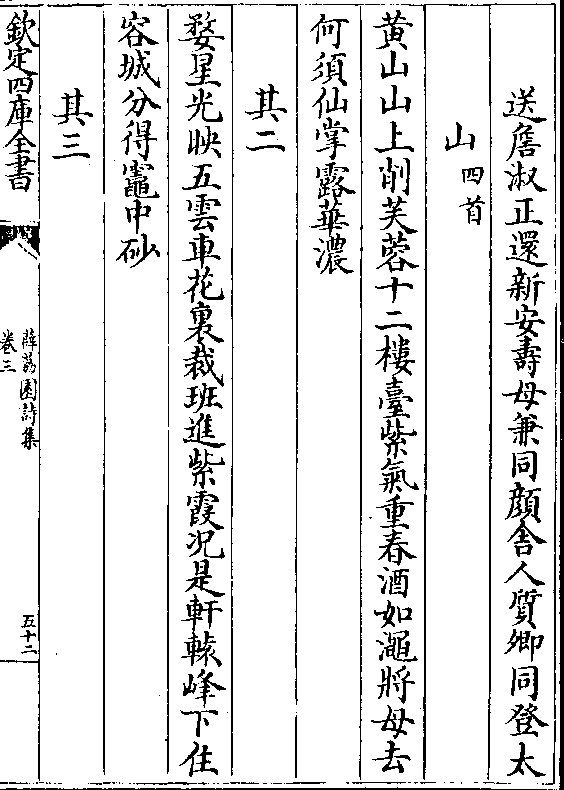 送詹淑正還新安壽母兼同顔舍人質卿同登太
山四首
黄山山上削芙蓉十二樓臺紫氣重春酒如澠將母去
何須仙掌露華濃
其二
婺星光映五雲車花裏裁班進紫霞况是軒轅峰下住
容城分得竈中砂
其三
欽定四庫全書
薜荔園詩集
卷三
五十二